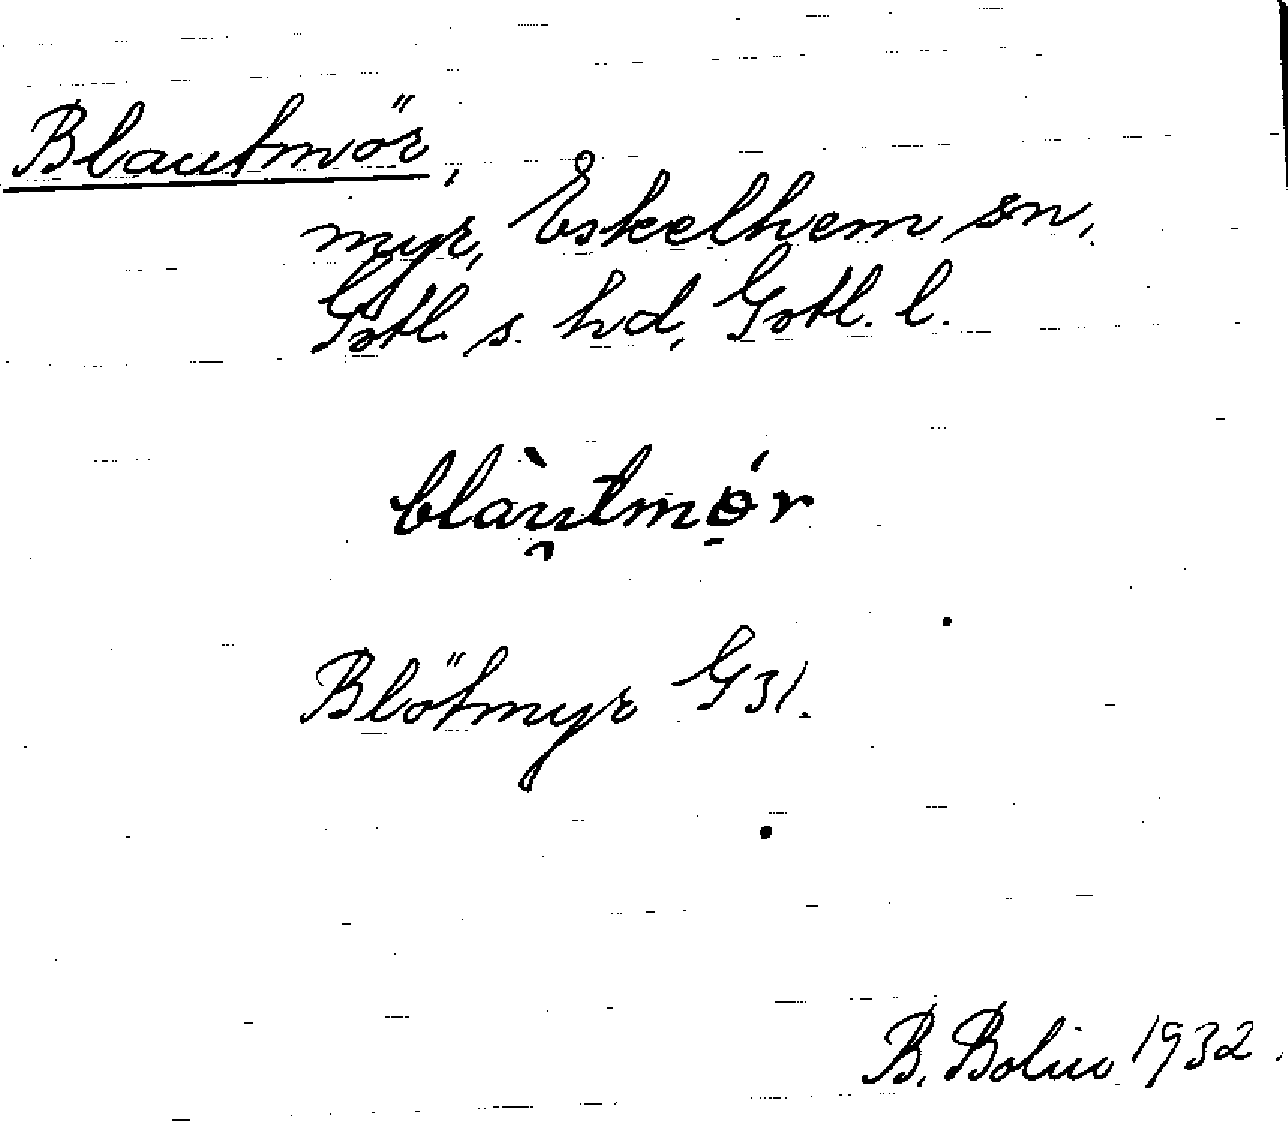 Blautmör,
myr, Eskelhem sn,
Gotl. s. hd, Gotl. l.
blàu̯tmọ́r
Blötmyr G31.
B. Bolin 1932.